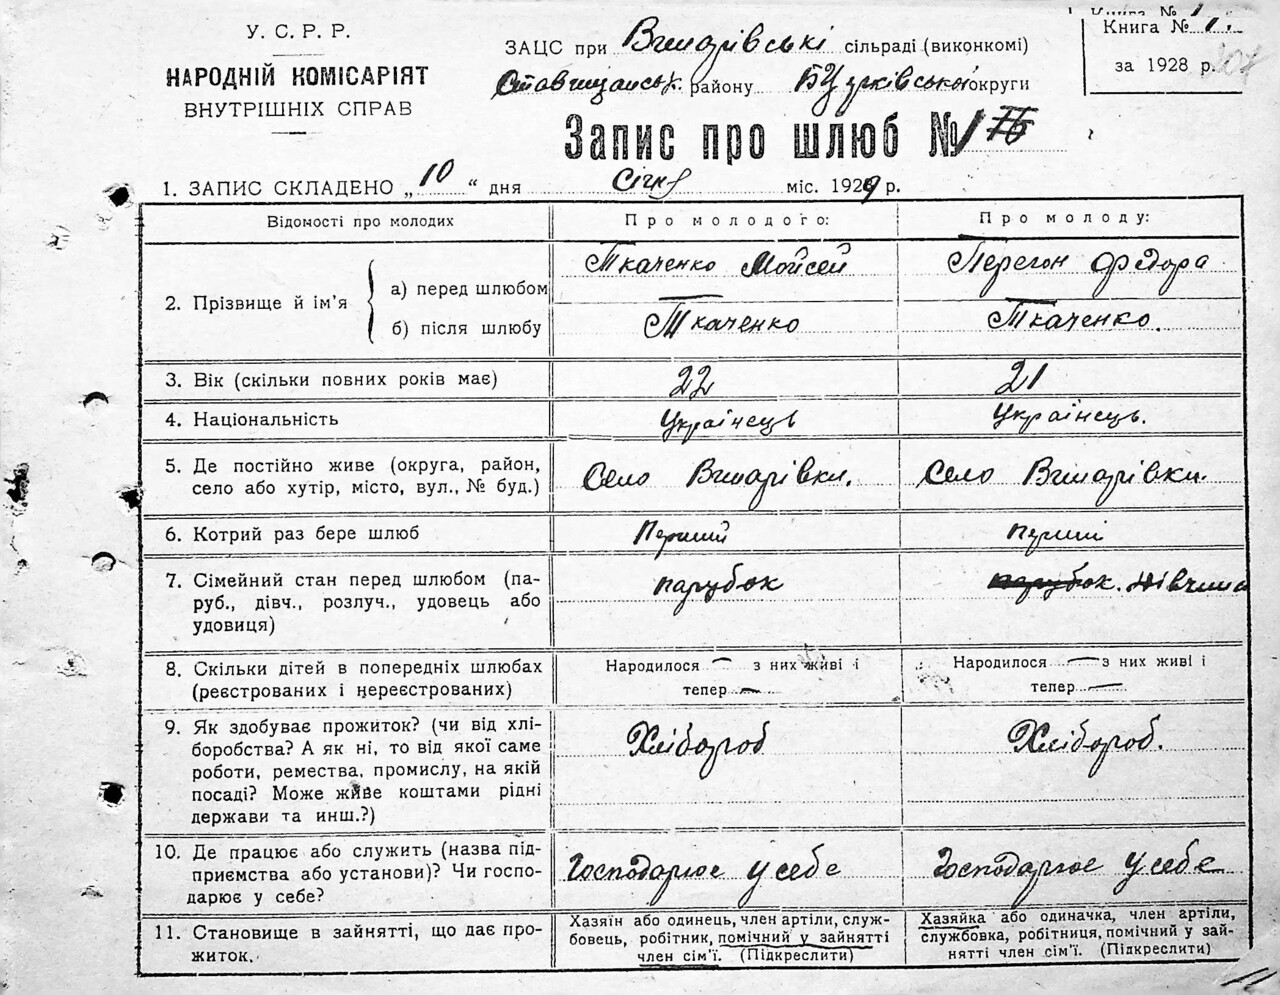 Книга № 11.
за 1928 р.
У. С. Р. Р.
НАРОДНІЙ КОМІСАРІЯТ
ВНУТРІШНІХ СПРАВ
ЗАЦС при Вишарівські сільраді (виконкомі)
Ставищанськ. району БЦерківської округи
Запис про шлюб № 1
1. ЗАПИС СКЛАДЕНО „ 10 “ дня січня міс. 1929 р.
Відомості про молодих
Про молодого:
Про молоду:
2. Прізвище й ім’я
а) перед шлюбом
Ткаченко Мойсей
Перегон Федора
б) після шлюбу
Ткаченко
Ткаченко.
3. Вік (скільки повних років має)
22
21
4. Національність
Українець
Українець.
5. Де постійно живе (округа, район,
село або хутір, місто, вул., № буд.)
Село Вишарівки.
Село Вишарівки.
6. Котрий раз бере шлюб
Перший
перший
7. Сімейний стан перед шлюбом (па-
руб., дівч., розлуч., удовець або
удовиця)
парубок
парубок. дівчина
8. Скільки дітей в попередніх шлюбах
(реєстрованих і нереєстрованих)
Народилося — з них живі і
тепер —
Народилося — з них живі і
тепер —
9. Як здобуває прожиток? (чи від хлі-
боробства? А як ні, то від якої саме
роботи, ремества, промислу, на якій
посаді? Може живе коштами рідні
держави та инш.?)
Хлібороб
Хлібороб.
10. Де працює або служить (назва під-
приємства або установи)? Чи госпо-
дарює у себе?
Господарює у себе
Господарює у себе
11. Становище в зайнятті, що дає про-
житок.
Хазяїн або одинець, член артілі, служ-
бовець, робітник, помічний у зайнятті
член сім’ї. (Підкреслити)
Хазяйка або одиначка, член артілі,
службовка, робітниця, помічний у зай-
нятті член сім’ї. (Підкреслити)